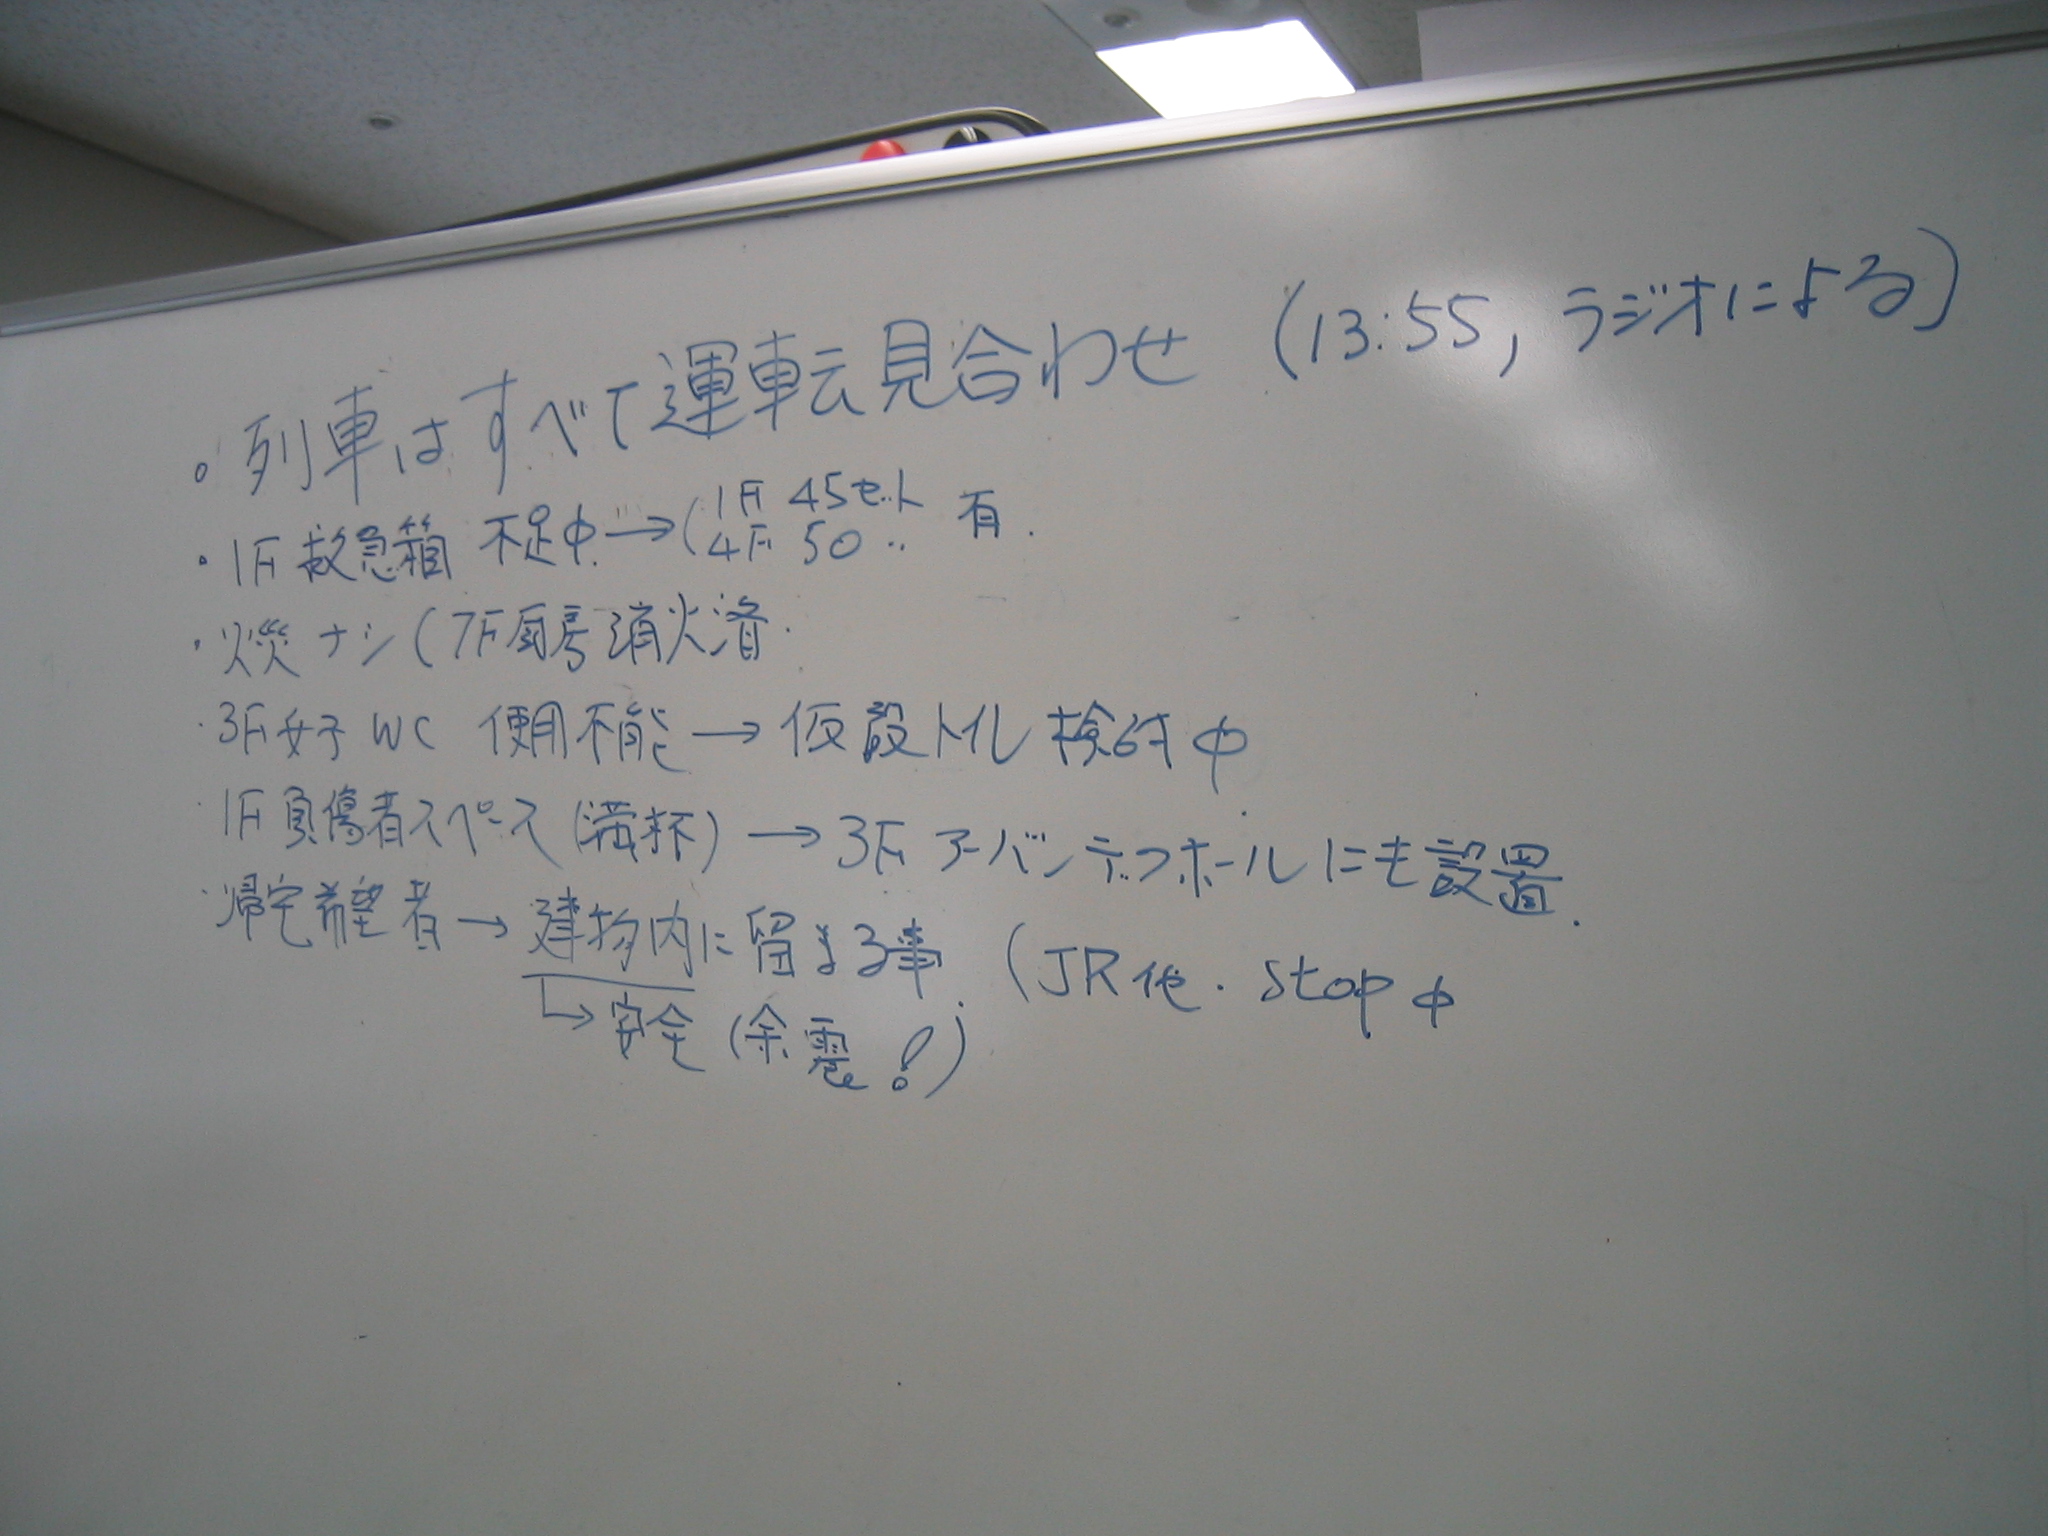 。列車はすべて運転見合わせ (13:55, ラジオによる)
・1F 救急箱 不足中 → (1F 45セット 有.
4F 50 〃
・火災ナシ (7F厨房消火済.
・3F女子WC 使用不能 → 仮設トイレ 検討中
・1F負傷者スペース (満杯) → 3F アーバンテラスホールにも設置.
・帰宅希望者 → 建物内に留まる事. (JR他. stop中
↳ 安全 (余震!)